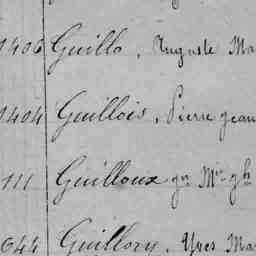 1406 Guillo, Auguste Ma
1404 Guillois, Pierre jean
111 Guilloux
644 Guillory, Yves Ma